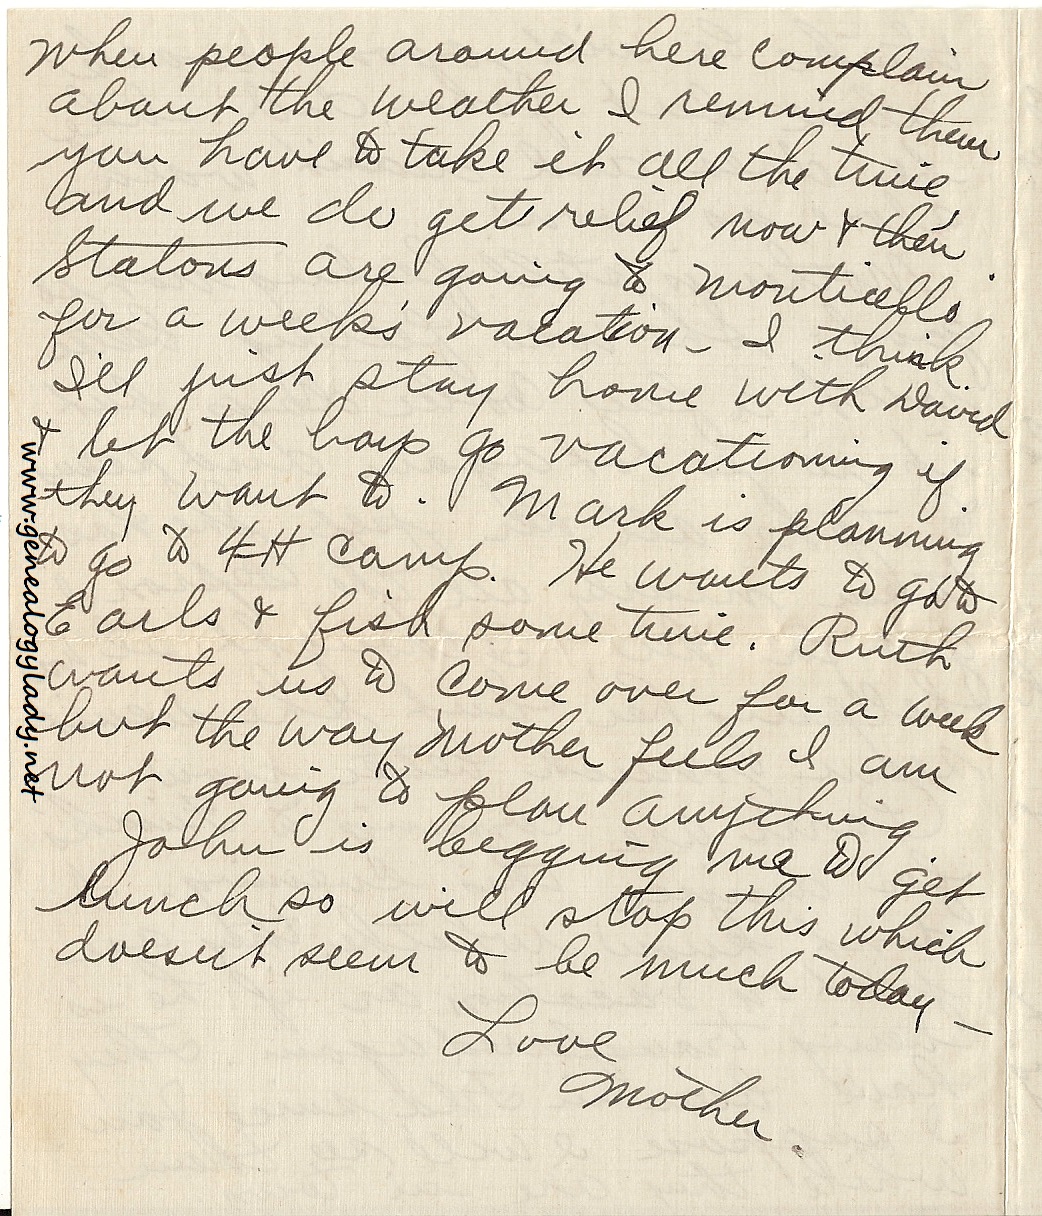 When people around here complain
about the weather I remind them
you have to take it all the time
and we do get relief now & then.
Statons are going to Monticello
for a week's vacation – I think
I'll just stay home with David
& let the boys go vacationing if
they want to. Mark is planning
to go to 4-H camp. He wants to go to
Earls & fish some time. Ruth
wants us to come over for a week
but the way Mother feels I am
not going to plan anything
John is begging me to get
lunch so will stop this which
doesn't seem to be much today –
Love
Mother.
www.genealogylady.net